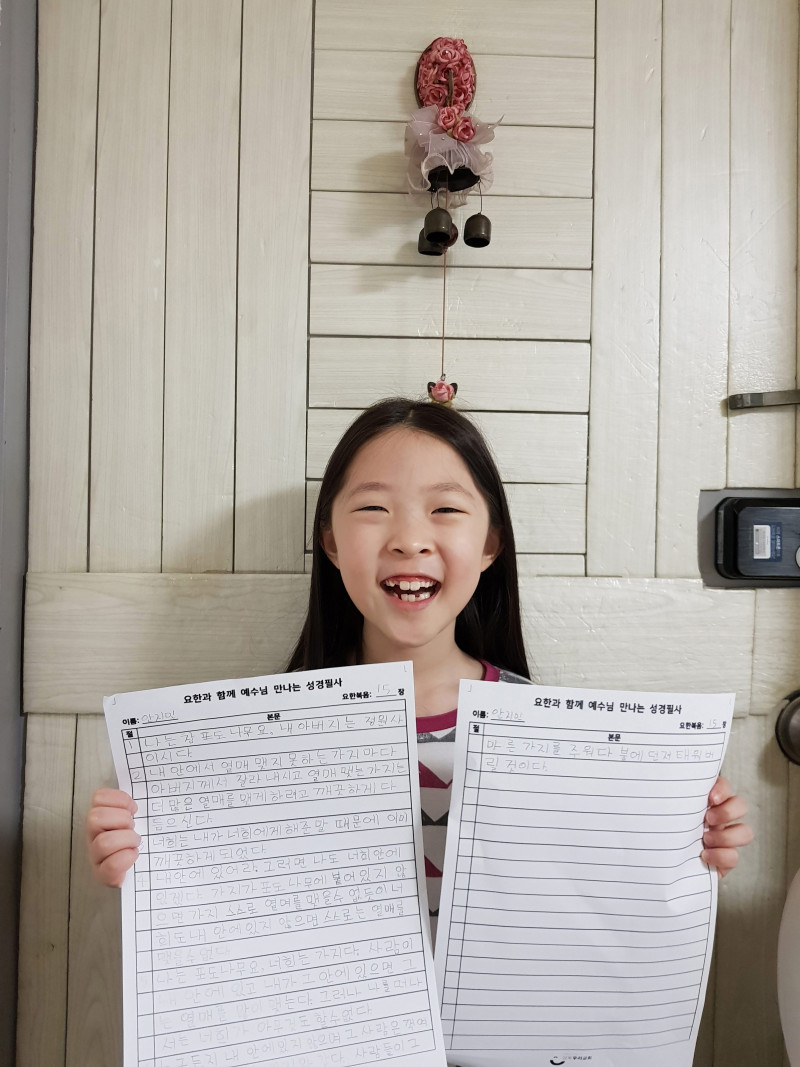 요한과 함께 예수님 만나는 성경필사
이름: 안지민 요한복음: 15 장
절 본문
1 나는 참 포도 나무요, 내 아버지는 정원사
이시다.
2 내 안에서 열매 맺지 못하는 가지마다
아버지께서 잘라 내시고 열매 맺는 가지는
더 많은 열매를 맺게 하려고 깨끗하게 다
듬으신다.
너희는 내가 너희에게 해준 말 때문에 이미
깨끗하게 되었다.
내안에 있어라. 그러면 나도 너희 안에
있겠다. 가지가 포도나무에 붙어 있지 않
으면 가지 스스로 열매를 맺을수 없듯이 너
희도 내 안에 있지 않으면 스스로는 열매를
맺을수 없다
나는 포도나무요, 너희는 가지다. 사람이
내 안에 있고 내가 그 안에 있으면 그
는 열매를 많이 맺는다. 그러나 나를 떠나
서는 너희가 아무것도 할수 없다
누구든지 내 안에 있지 않으면 그 사람은 꺾여
사람들이 그
요한과 함께 예수님 만나는 성경필사
이름: 안지민 요한복음: 15 장
절 본문
마른 가지를 주워다 불에 던져 태워버
릴 것이다.